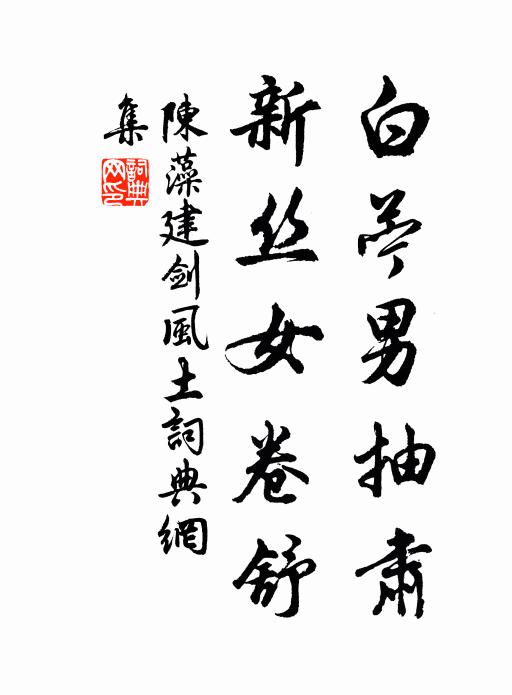 白苧男抽肃
新丝女卷舒
陳藻建劍風土詞典網
集
詞典網印